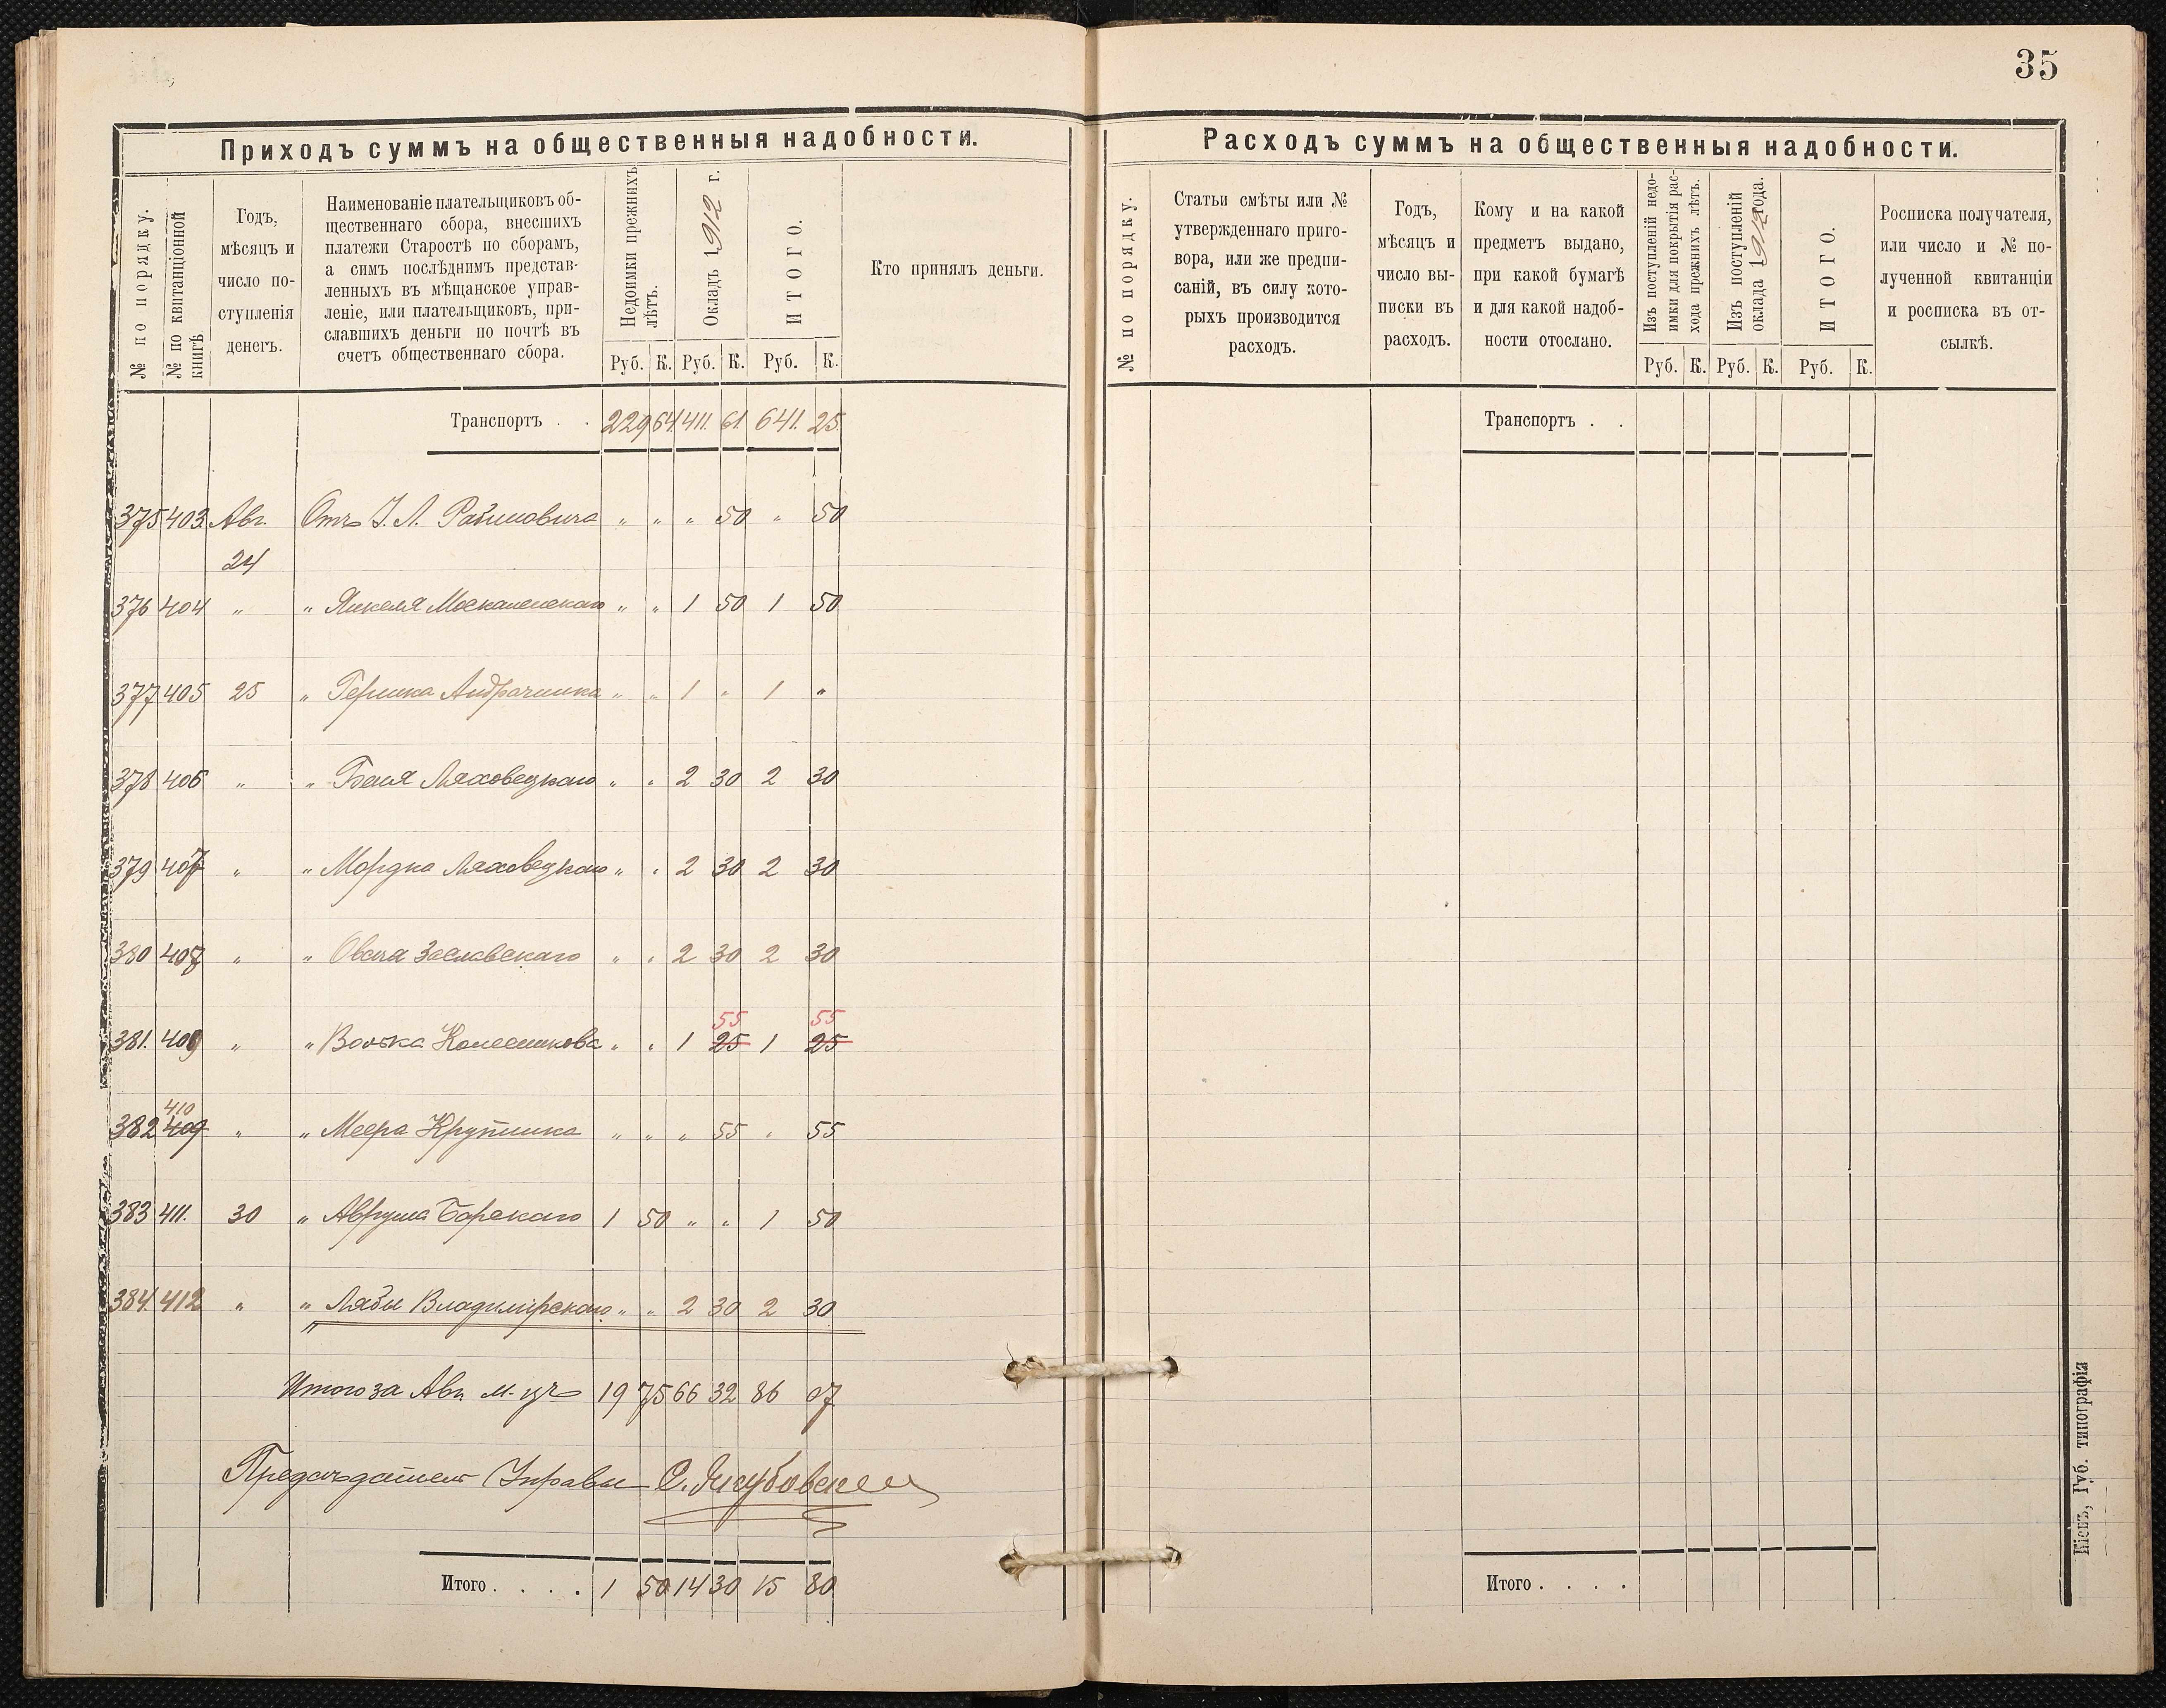 35
Приходъ суммъ на общественныя надобности.
№ по порядку.
№ по квитанціонной книгѣ.
Годъ,
мѣсяцъ и
число по-
ступленія
денегъ.
Наименованіе плательщиковъ об-
щественнаго сбора, внесшихъ
платежи Старостѣ по сборамъ,
а симъ послѣднимъ представ-
ленныхъ въ мѣщанское управ-
леніе, или плательщиковъ, при-
славшихъ деньги по почтѣ въ
счетъ общественнаго сбора.
Недоимки прежнихъ
лѣтъ.
Окладъ 1912 г.
ИТОГО.
Руб. К. Руб. К. Руб. К.
Кто принялъ деньги.
Транспортъ . . 229 64 411. 61 641. 25.
375 403. Авг. Отъ І. Л. Рабиновича " " " 50 " 50
24
376 404 " " Янкеля " " 1 50 1 50
377 405 25 " Гершка " " 1 " 1 "
378 406 " " Беня Ляховецкаго " " 2 30 2 30
379 407 " " Мордка Ляховецкаго " " 2 30 2 30
380 408 " " Овсея Заславскаго " " 2 30 2 30
55 55
381. 409 " " Волька Колесникова " " 1 25 1 25
410
382 409 " " Меера Крупника " " " 55 " 55
383 411. 30 " Аврума Барскаго 1 50 " " 1 50
384. 412 " " Лабы Владимірскаго " " 2 30 2 30
Итого за Авг. м-цъ 19 75 66 32 86 07
Предсѣдатель Управы
Итого . . . . 1 50 14 30 15 80
Расходъ суммъ на общественныя надобности.
№ по порядку.
Статьи смѣты или №
утвержденнаго приго-
вора, или же предпи-
саній, въ силу кото-
рыхъ производится
расходъ.
Годъ,
мѣсяцъ и
число вы-
писки въ
расходъ.
Кому и на какой
предметъ выдано,
при какой бумагѣ
и для какой надоб-
ности отослано.
Изъ поступленій недо-
имки для покрытія рас-
хода прежнихъ лѣтъ.
Изъ поступленій
оклада 1912 года.
ИТОГО.
Руб. К. Руб. К. Руб. К.
Росписка получателя,
или число и № по-
лученной квитанціи
и росписка въ от-
сылкѣ.
Транспортъ . .
Итого . . . .
Кіевъ, Губ. типографія